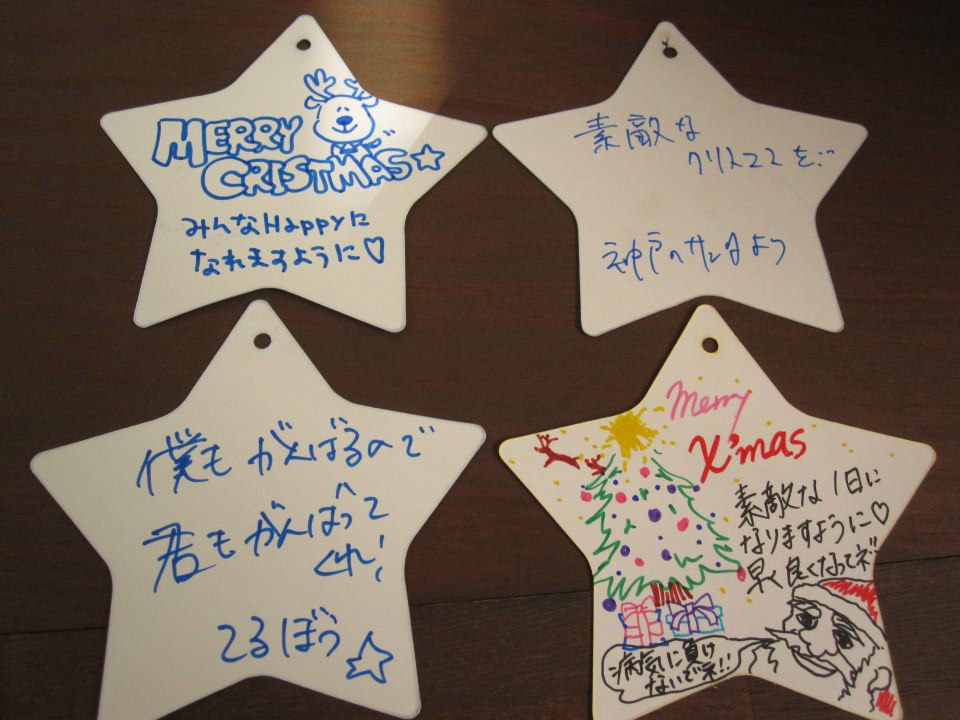 MERRY
CRISTMAS☆
みんなHappyに
なれますように♡
素敵な
クリスマスを…
神戸のサンタより
僕もがんばるので
君もがんばって
くれ!
てるぼう☆
Merry
X'mas
素敵な1日に
なりますように♡
早く良くなってネ
病気に負け
ないで下さい!!